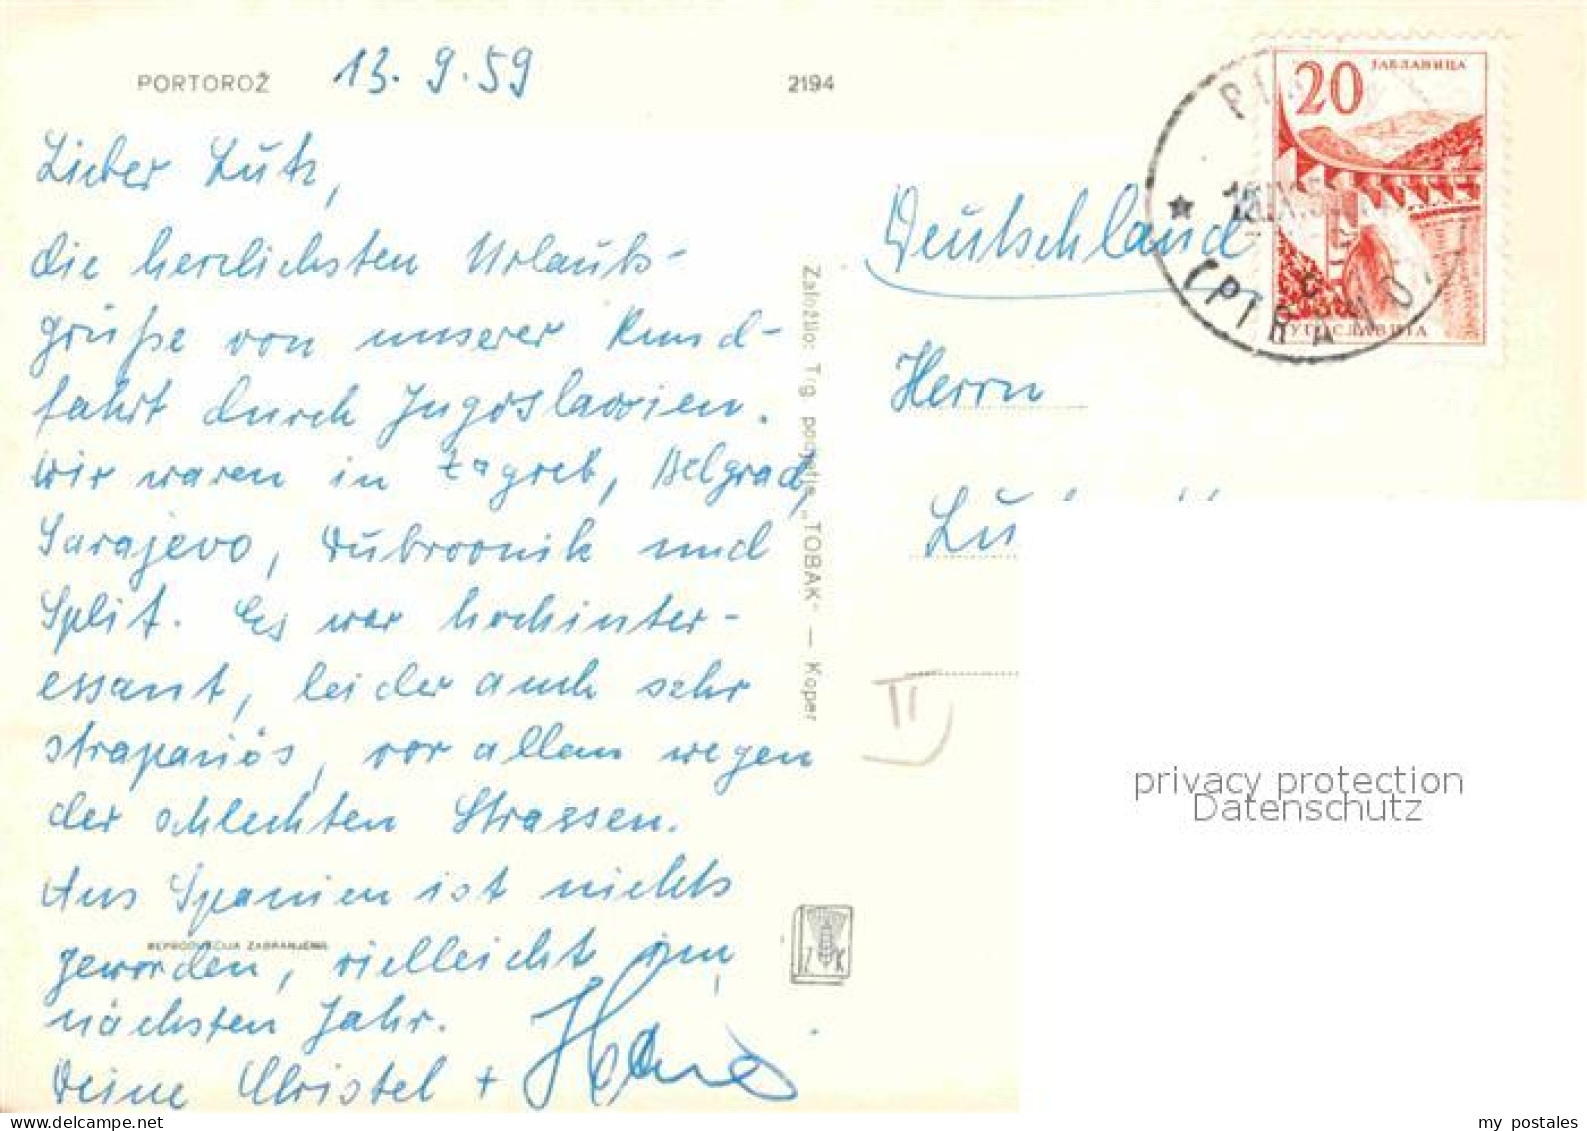 PORTOROŽ 13.9.59 2194
Lieber Lutz,
die herzlichsten Urlaubs-
grüße von unserer Rund-
fahrt durch Jugoslawien.
Wir waren in Zagreb, Belgrad,
Sarajevo, Dubrovnik und
Split. Es war hochinter-
essant, leider auch sehr
strapaziös, vor allem wegen
der schlechten Strassen.
Aus Spanien ist nichts
geworden, vielleicht im
nächsten Jahr.
Deine Christel +
REPRODUKCIJA ZABRANJENA
Založilo: Trg. podjetje „TOBAK" — Koper
Z K
Deutschland
Herrn
II
20 ЈАБЛАНИЦА
ЈУГОСЛАВИЈА
(PIRANO)
privacy protection
Datenschutz
my postales